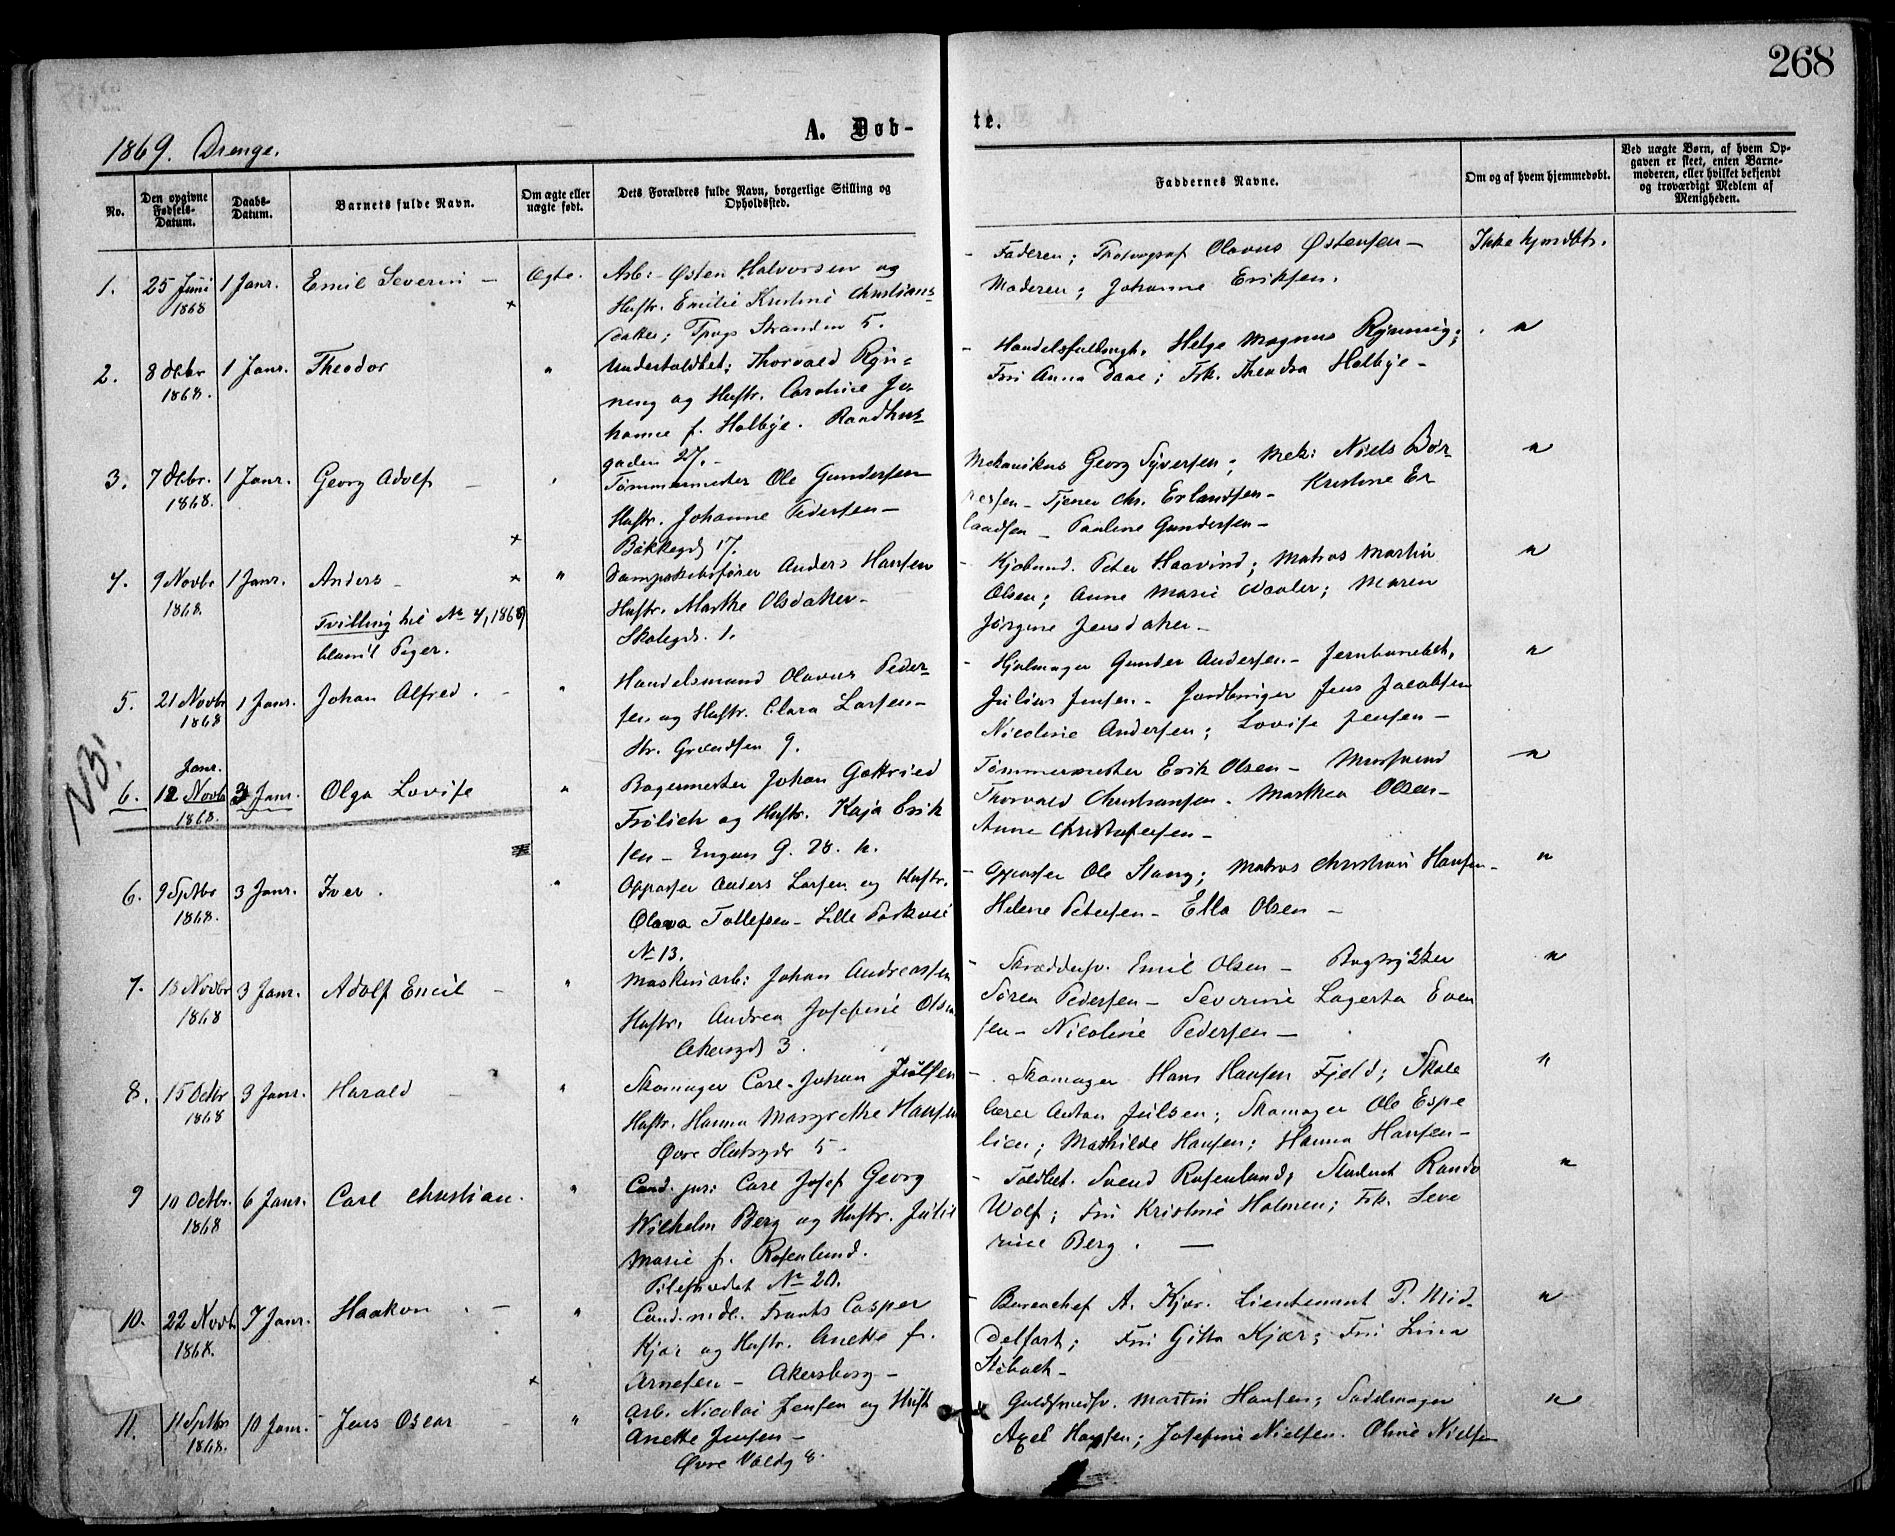 268
A. Døb-
te.
1869. Drenge.
No.
Den opgivne Fødsels-Datum.
Daabs-Datum.
Barnets fulde Navn.
Om ægte eller uægte født.
Dets Forældres fulde Navn, borgerlige Stilling og Opholdssted.
Faddernes Navne.
Om og af hvem hjemmedøbt.
Ved uægte Børn, af hvem Opgaven er skeet, enten Barnemoderen, eller hvilket bekjendt og troværdigt Medlem af Menigheden.
1. 25 Juni 1868 1 Janr. Emil Severin – Ægte.
Arb: Østen Halvorsen og
Hustr. Emilie Kristine Christians-
datter; Stranden 5.
– Faderen; Olavus Østensen –
Moderen; Johanne Eriksen.
Ikke hjmdbt.
2. 8 Octbr 1868. 1 Janr. Theodor "
Thorvald Ryn-
ning og Hustr. Caroline Jo-
hanne f. Holbye. Raadhus-
gaden 27. –
– Handelsfuldmgt. Helge Magnus Rynning;
Fru Anna Daae; Frk. Theodora Holbye – "
3. 7 Octbr. 1868. 1 Janr. Georg Adolf – "
Tømmermester Ole Gundersen
Hustr. Johanne Pedersen –
Bakkegd 17.
Mekanikus Georg Syversen; Mek: Niels Bør-
resen – Tjener Chr. Erlandsen – Kristine Er
landsen – Pauline Gundersen – "
4. 9 Novbr 1868. 1 Janr. Anders – "
Tvilling til No 4, 1869
blandt Piger.
Dampskibsfører Anders Hansen
Hustr. Marthe Olsdatter –
Skolegd. 1.
– Kjøbmd. Peter Haavind; Matros Martin
Olsen; Anne Marie Vaaler; Maren
Jørgine Jensdatter – "
5. 21 Novbr 1868 1 Janr. Johan Alfred. – "
Handelsmand Olavus Peder-
sen og Hustr. Clara Larsen –
Str. Grændsen 9.
– Hjulmager Gunder Andersen – Jernbanebet.
Julius Jensen – Jens Jacobsen
Nicoline Andersen; Lovise Jensen – "
NB.
6. 12 Novbr Janr. 1868. 3 Janr. Olga Lovise "
Bagermester Johan Gottfried
Frølich og Hustr. Kaja Erik
sen – Engens G. 28.
Tømmermester Erik Olsen –
Thorvald Christiansen. Marthea Olsen –
Anne Christophersen – "
6. 9 Septbr 1868. 3 Janr. Iver. "
Oppasser Anders Larsen og Hustr.
Olava Tollefsen – Lille Parkvei
No 13.
– Oppasser Ole Stang; Matros Christian Hansen –
Helene Petersen – Ella Olsen – "
7. 18 Novbr 1868 3 Janr. Adolf Emil – "
Maskinarb: Johan Andreassen
Hustr. Andrea Josefine Olsen
Akersgd 3.
– Skræddersv. Emil Olsen – Bogtrykker
Søren Pedersen – Severine Lagerta Even
sen – Nicoline Pedersen – "
8. 15 Octbr 1868 3 Janr. Harald – "
Skomager Carl Johan Juelsen
Hustr. Hanna Margrethe Hansen
Øvre Slotsgd 5 –
– Skomager Hans Hansen Fjeld; Skole
lærer Anton Julsen; Skomager Ole Espe
lien; Mathilde Hansen; Hanna Hansen – "
9 10 Octbr. 1868 6 Janr. Carl Christian. "
Cand. jur: Carl Josef Georg
Wilhelm Berg og Hustr. Julie
Marie f. Rosenlund.
Pilestrædet No 20.
– Toldbet. Svend Rosenlund, Student
Wolf; Fru Kristine Holmen; Frk. Seve
rine Berg. – "
10. 22 Novbr. 1868. 7 Janr. Haakon. – "
Cand. med. Frants Casper
Kjær og Hustr. Anette f.
Arnesen – Akersborg –
– Bureauchef A. Kjær. Lieutenant P. Mid-
delfart; Fru Gitta Kjær; Fru Lina
"
11. 11 Septbr 1868. 10 Janr. – Jens Oscar – "
Arb. Nicolai Jensen og Hustr
Anette Jensen –
Øvre Voldg 8.
Guldsmedsv. Martin Hansen; Sadelmager
Axel Hansen; Josefine Nielsen. Oline Nielsen "